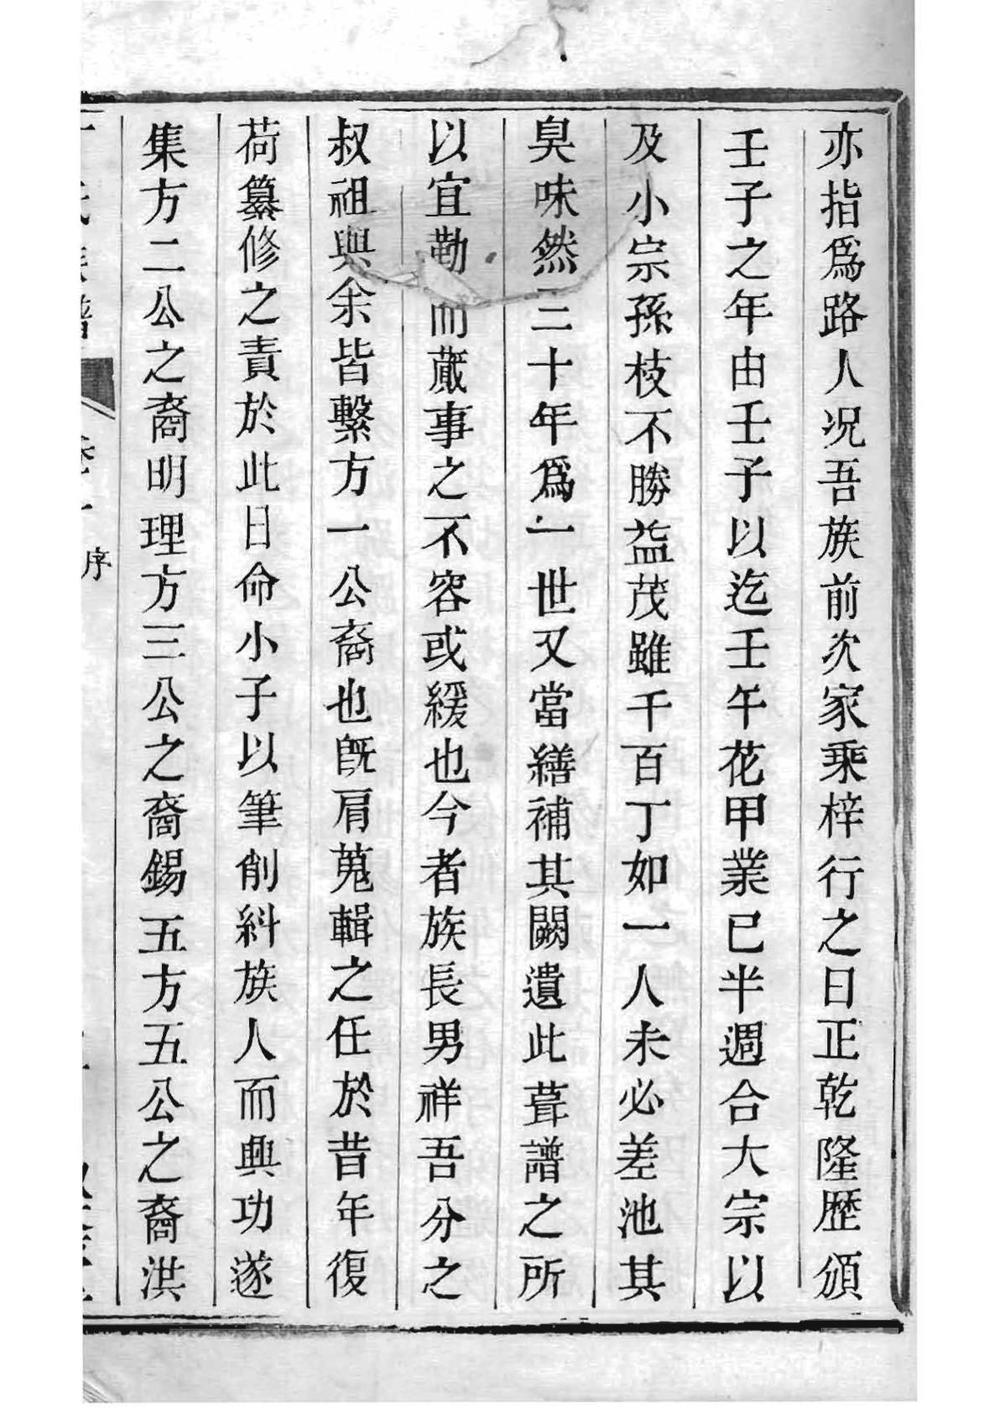 亦指爲路人况吾族前次家乘梓行之日正乾隆歷頒
壬子之年由壬子以迄壬午花甲業已半週合大宗以
及小宗孫枝不勝益茂雖千百丁如一人未必差池其
臭味然三十年爲一世又當繕補其闕遺此葺譜之所
以宜勤而蕆事之不容或緩也今者族長男祥吾分之
叔祖與余皆繫方一公裔也旣肩蒐輯之任於昔年復
荷纂修之責於此日命小子以筆削糾族人而興功遂
集方二公之裔明理方三公之裔錫五方五公之裔洪
序